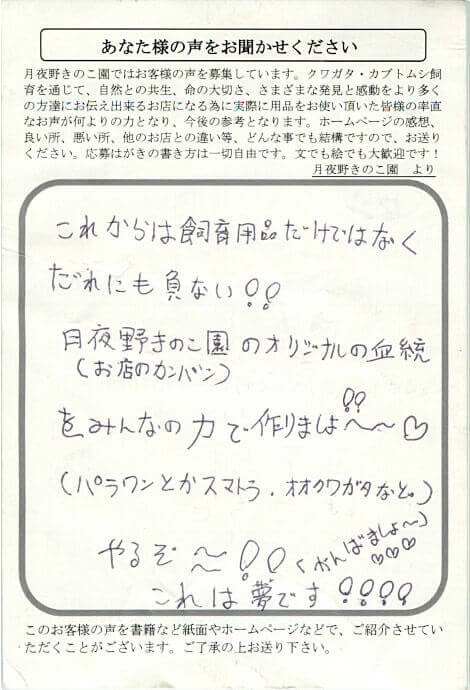 あなた様の声をお聞かせください
月夜野きのこ園ではお客様の声を募集しています。クワガタ・カブトムシ飼
育を通じて、自然との共生、命の大切さ、さまざまな発見と感動をより多く
の方達にお伝え出来るお店になる為に実際に用品をお使い頂いた皆様の率直
なお声が何よりの力となり、今後の参考となります。ホームページの感想、
良い所、悪い所、他のお店との違い等、どんな事でも結構ですので、お送り
ください。応募はがきの書き方は一切自由です。文でも絵でも大歓迎です！
月夜野きのこ園　より
これからは飼育用品だけではなく
だれにも負ない!!
月夜野きのこ園のオリジナルの血統
(お店のカンバン)
をみんなの力で作りましょ!!〜〜♡
(パラワンとかスマトラ．オオクワガタなど。)
やるぞ〜!!(がんばましょ〜)♡♡♡
これは夢です!!!!
このお客様の声を書籍など紙面やホームページなどで、ご紹介させてい
ただくことがございます。ご了承の上お送り下さい。